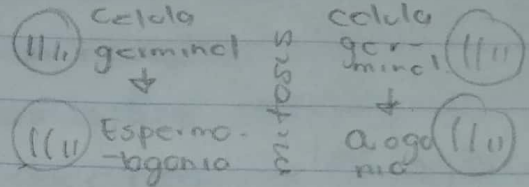 Celula
germinal
↓
Espermo-
-togonia
mitosis
celula
ger-
minal
↓
a ogo
nia